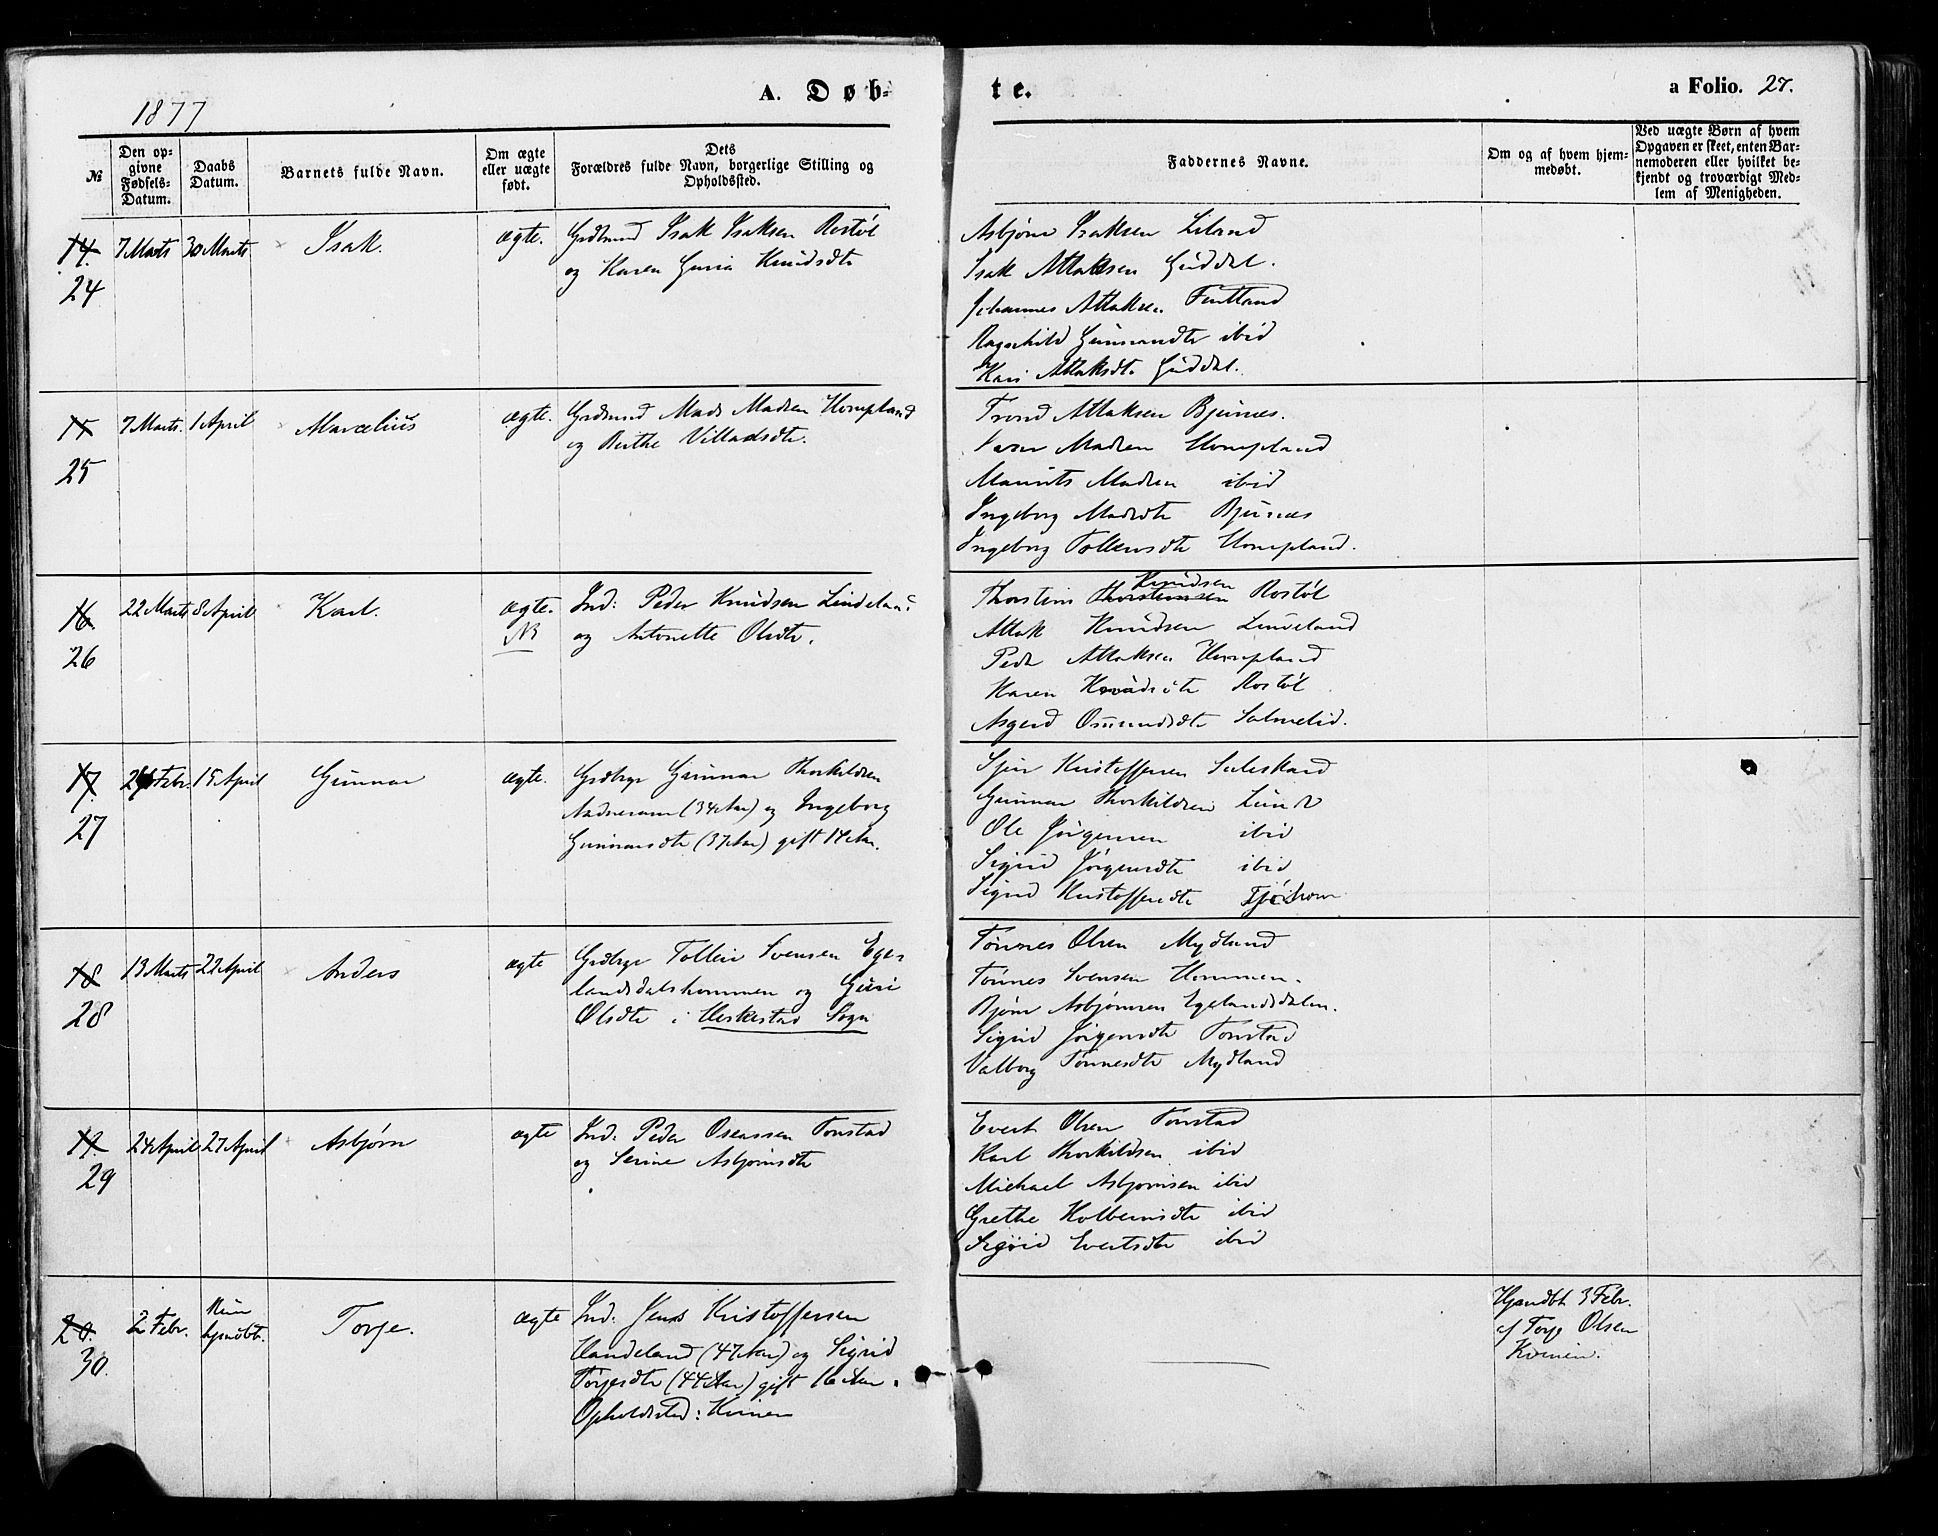 1877
A. Døb-
te.
a Folio. 27.
№
Den op-
givne
Fødsels-
Datum.
Daabs
Datum.
Barnets fulde Navn.
Om ægte
eller uægte
født.
Dets
Forældres fulde Navn, borgerlige Stilling og
Opholdssted.
Faddernes Navne.
Om og af hvem hjem-
medøbt.
Ved uægte Børn af hvem
Opgaven er skeet, enten Bar-
nemoderen eller hvilket be-
kjendt og troværdigt Med-
lem af Menigheden.
14. 7 Marts 30 Marts Isak. ægte. Grdmnd Isak Isaksen Rostøl
24
og Karen Guria Knudsdtr
Asbjørn Isaksen Liland
Isak Atlaksen Guddal.
Johannes Atlaksen Fintland
Ragnhild Gunnarsdtr ibid
Kari Atlaksdtr Guddal.
15 7 Marts. 1 April Marcelius ægte. Grdmnd Mads Madsen Hompland
25
og Berthe Villadsdtr.
Trond Atlaksen Bjunes.
Madsen Hompland
Maurits Madsen ibid
Ingeborg Madsdtr Bjunes
Ingeborg Tollevsdtr Hompland.
16. 22 Marts 8 April Karl. ægte. Ind: Peder Knudsen Lindeland
26
og Antonette Olsdtr.
Knudsen
Thorstein Thorsteinsen Rostøl
Atlak Knudsen Lindeland
Peder Atlaksen Hompland
Karen Knudsdtr Rostøl
Asgerd Osmundsdtr Salmelid.
17. 24 Febr. 15 April Gunnar ægte. Grdbrgr Gunnar Thorkildsen
27
Aadneram (34 Aar) og Ingeborg
Gunnarsdtr (37 Aar) gift 14 Aar.
Kristoffersen Suleskard
Gunnar Thorkildsen Lunde
Ole Jørgensen ibid
Sigrid Jørgensdtr ibid
Sigrid Kristoffersdtr Tjørhom
18 13 Marts 22 April Anders ægte Grdbrgr Tollei Svensen Ege-
28
landsdalshommen og Guri
Olsdtr i Heskestad Sogn
Tønnes Olsen Mydland
Tønnes Svensen Hommen.
Bjørn Asbjørnsen Egelandsdalen.
Sigrid Jørgensdtr Tonstad
Valborg Tønnesdtr Mydland
19. 24 April 27 April Asbjørn ægte Ind: Peder Oseassen Tonstad
29
og Serine Asbjørnsdtr
Evert Olsen Tonstad
Karl Thorkildsen ibid
Michael Asbjørnsen ibid
Grethe Kolbeinsdtr ibid
Sigrid Evertsdtr ibid
20. 2 Febr. Kun
hjmdbt. Torje. ægte Ind: Jens Kristoffersen
30.
Handeland (47 Aar) og Sigrid
Torjesdtr (44 Aar) gift 16 Aar.
Opholdssted: Kvinen
Hjmdbt 3 Febr.
af Torje Olsen
Kvinen.